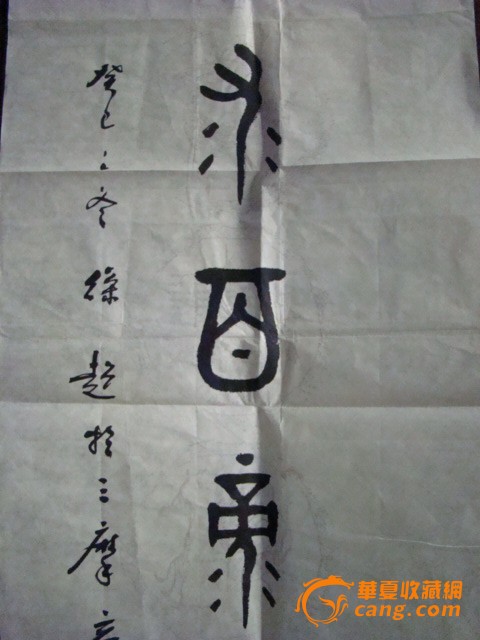 求百康
癸巳之冬徐超於三摩
華夏收藏網
cang.com